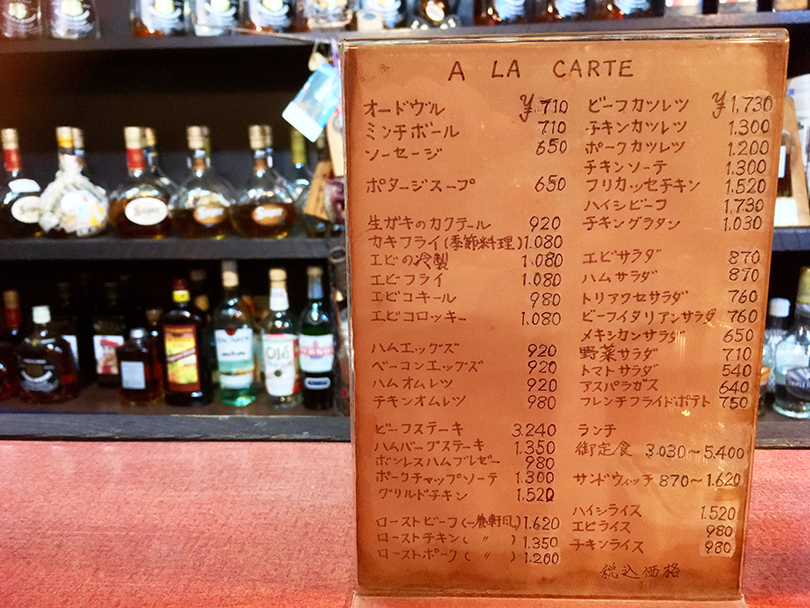 A LA CARTE
オードヴル ¥710
ミンチボール 710
ソーセージ 650
ポタージスープ 650
生ガキのカクテール 920
カキフライ(季節料理) 1.080
エビの冷製 1.080
エビフライ 1.080
エビコキール 980
エビコロッキー 1.080
ハムエッグズ 920
ベーコンエッグズ 920
ハムオムレツ 920
チキンオムレツ 980
ビーフステーキ 3.240
ハムバーグステーキ 1.350
ボンレスハムブレゼー 980
ポークチャップソーテ 1.300
グリルドチキン 1.520
ローストビーフ(一養軒風) 1.620
ローストチキン( 〃 ) 1.350
ローストポーク( 〃 ) 1.200
ビーフカツレツ ¥1.730
チキンカツレツ 1.300
ポークカツレツ 1.200
チキンソーテ 1.300
フリカッセチキン 1.520
ハイシビーフ 1.730
チキングラタン 1.030
エビサラダ 870
ハムサラダ 870
トリアワセサラダ 760
ビーフイタリアンサラダ 760
メキシカンサラダ 650
野菜サラダ 710
トマトサラダ 540
アスパラガス 640
フレンチフライドポテト 750
ランチ
御定食 3.030〜5.400
サンドウィッチ 870〜1.620
ハイシライス 1.520
エビライス 980
チキンライス 980
税込価格